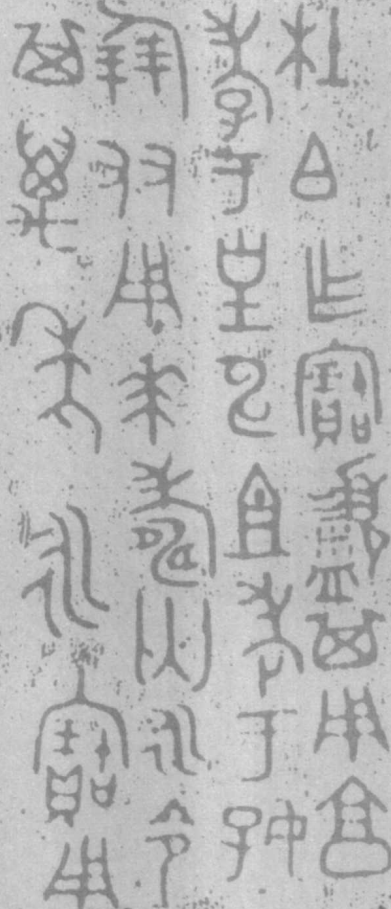 杜白乍寶盨其用亯
孝于皇申且考于好
倗友用𠦪壽匄永令
其萬年永寶用